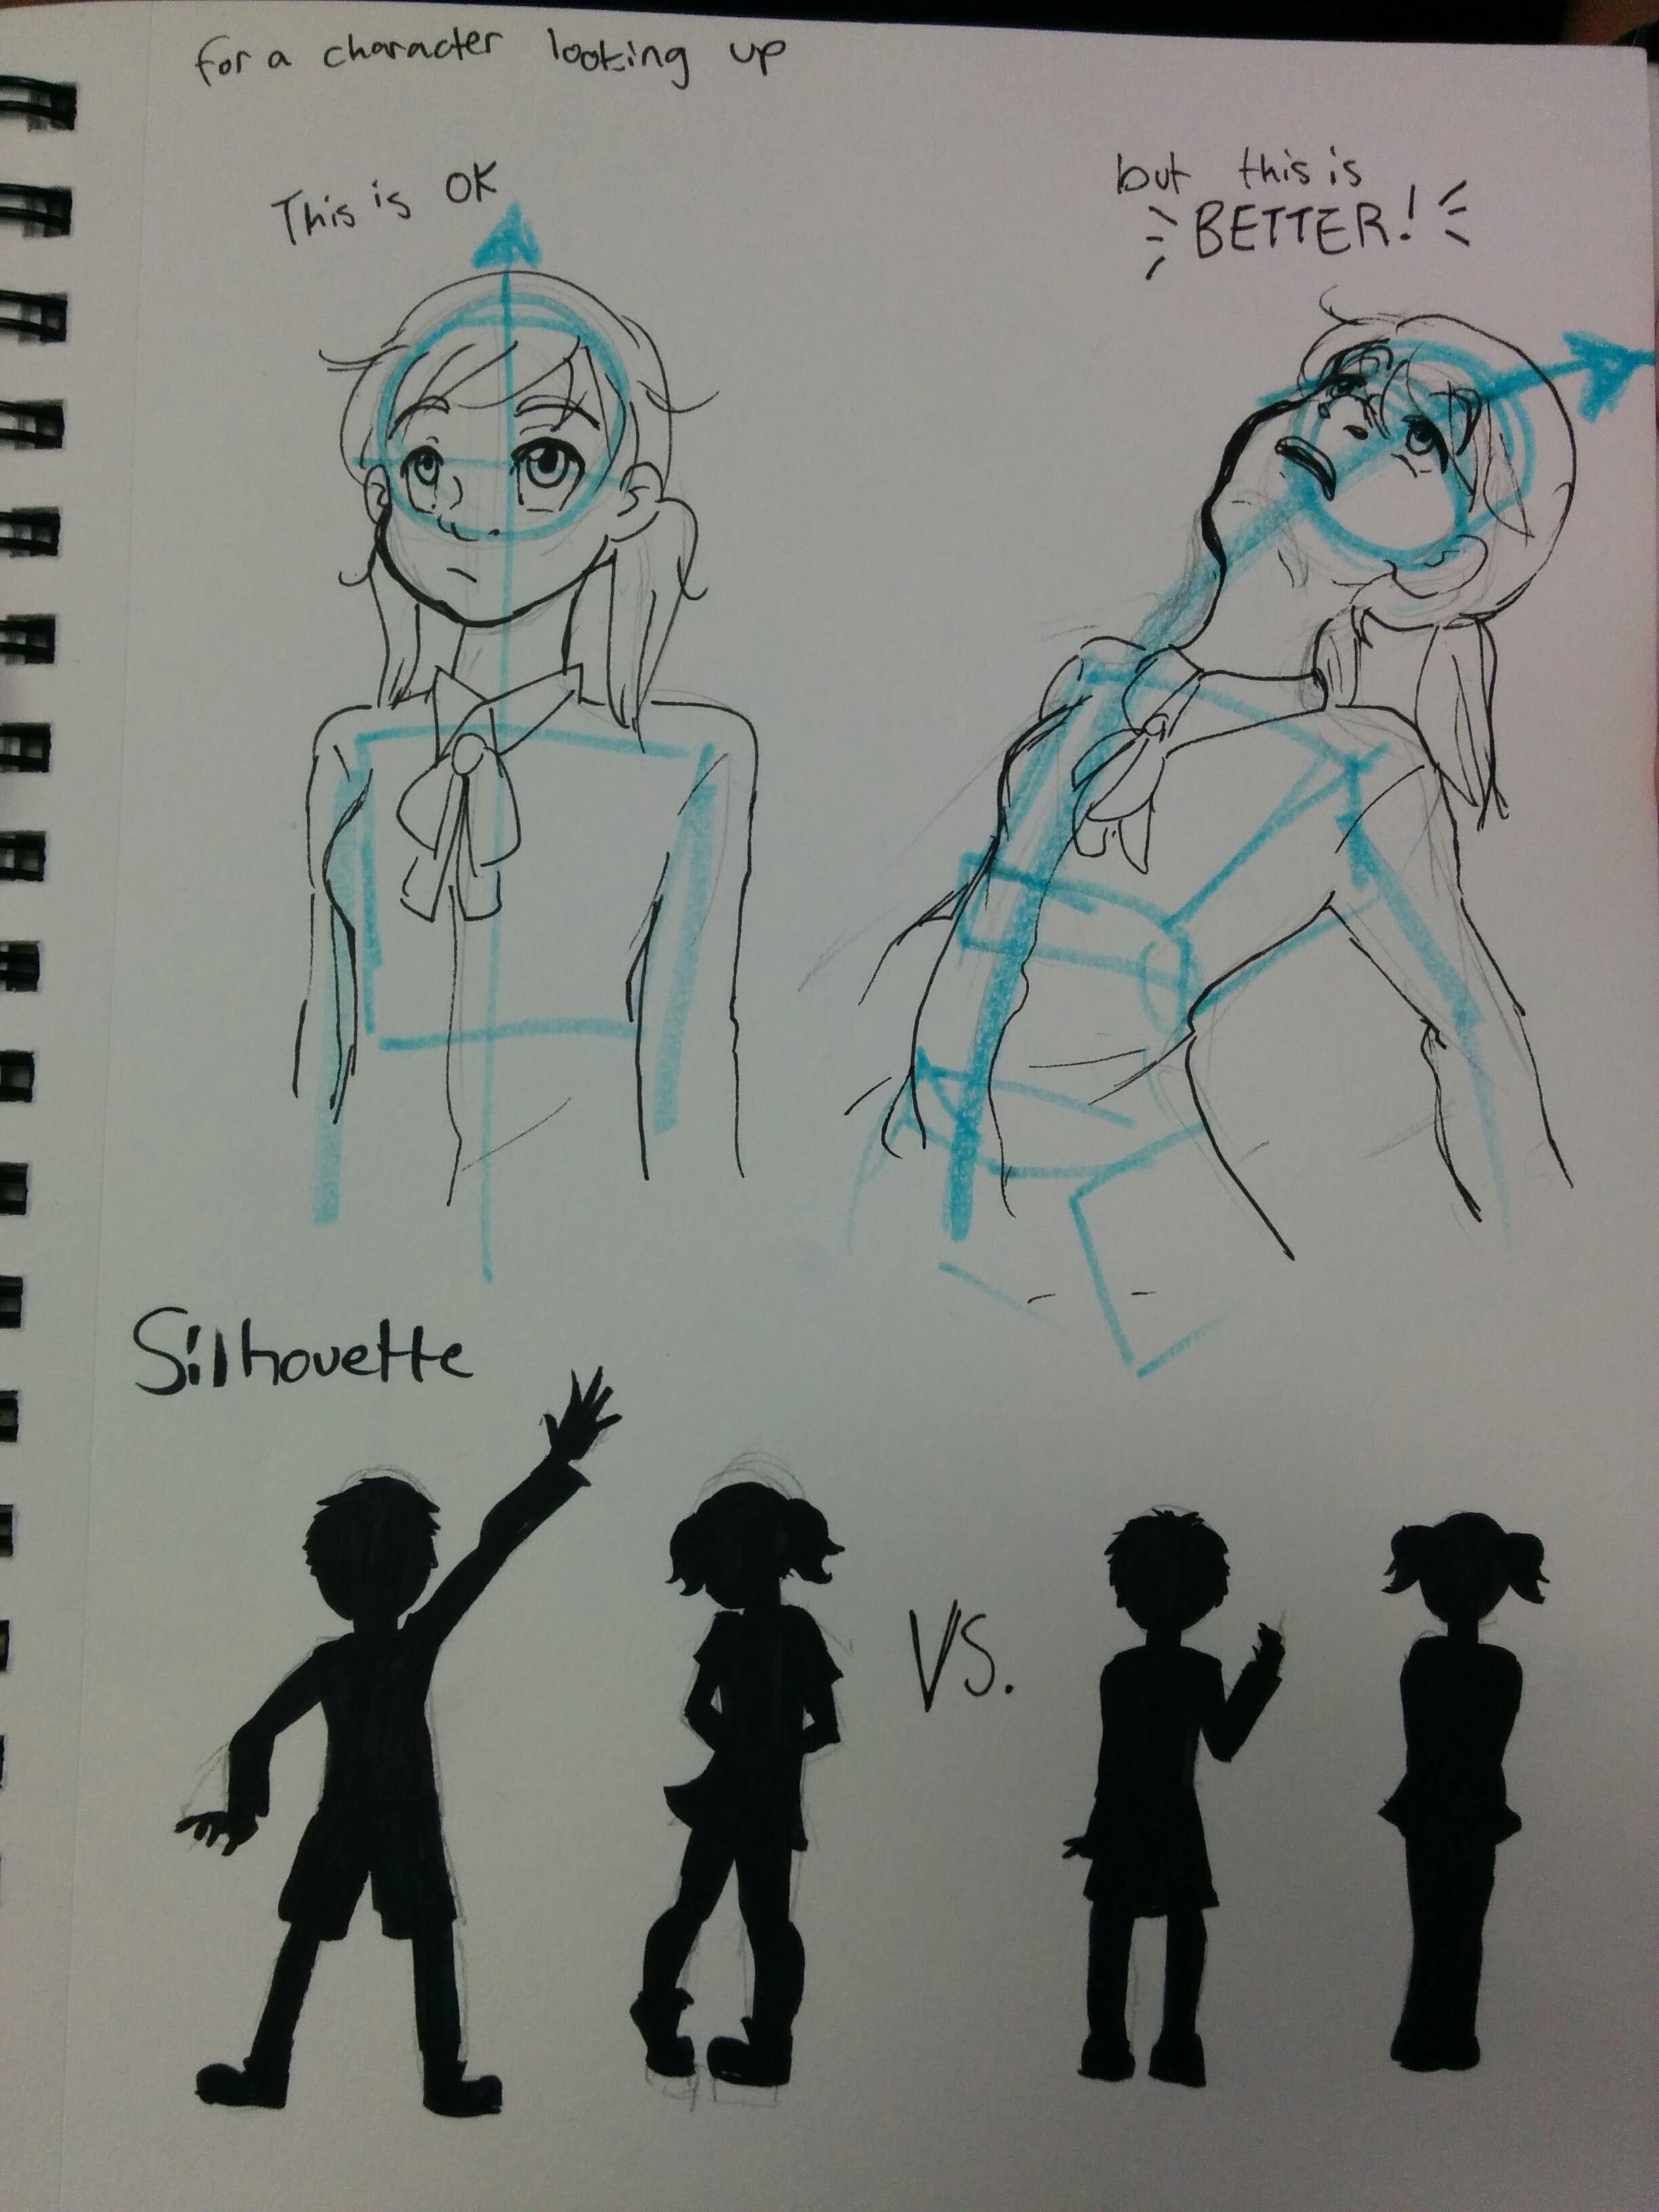 for a character looking up
This is OK
but this is
BETTER!
Silhouette
VS.